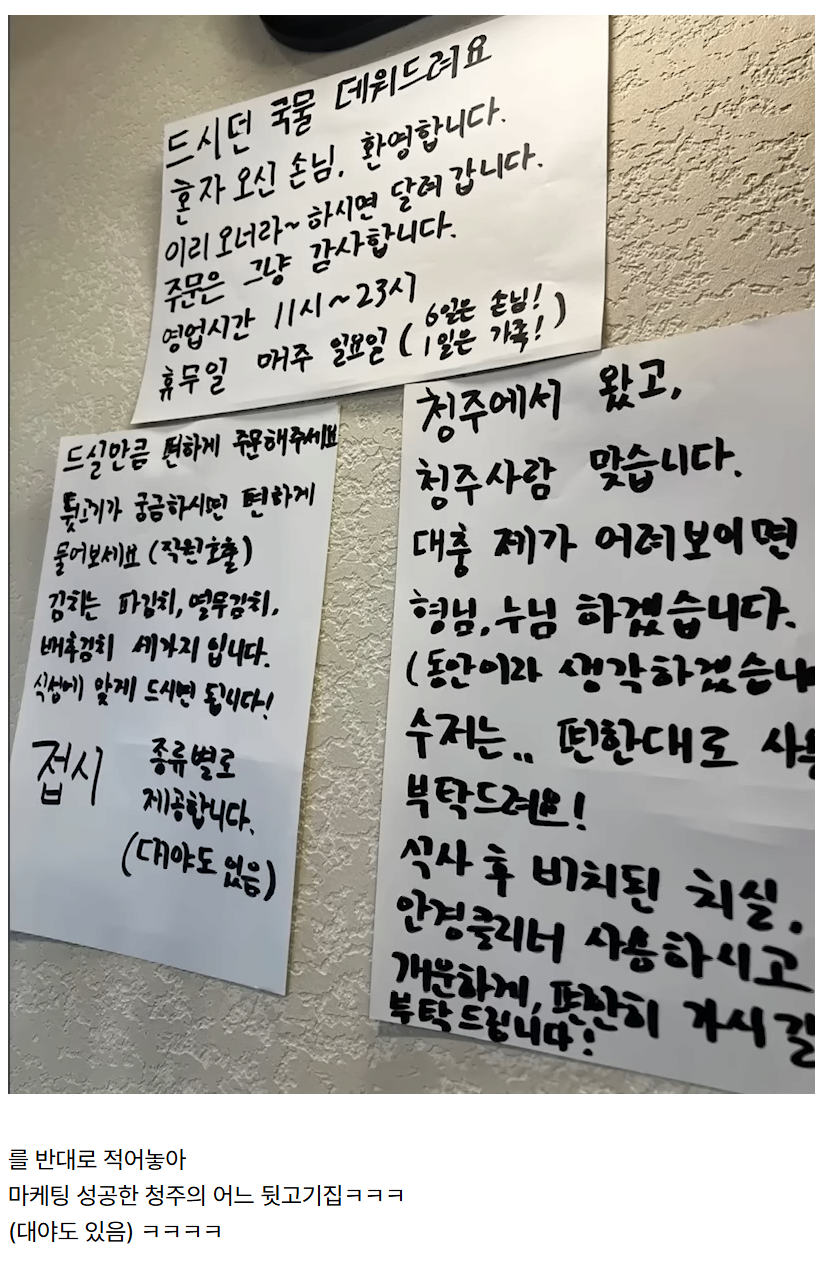 드시던 국물 데워드려요
혼자 오신 손님, 환영합니다.
이리 오너라~ 하시면 달려 갑니다.
주문은 그냥 감사합니다.
영업시간 11시~23시
휴무일 매주 일요일 (6일은 손님! 1일은 가족!)
드실만큼 편하게 주문해주세요
뒷고기가 궁금하시면 편하게
물어보세요 (직원호출)
김치는 파김치, 열무김치,
배추김치 세가지 입니다.
식성에 맞게 드시면 됩니다!
접시 종류별로
제공합니다.
(대야도 있음)
청주에서 왔고,
청주사람 맞습니다.
대충 제가 어려보이면
형님, 누님 하겠습니다.
(동안이라 생각하겠습니
수저는.. 편한대로 사용
부탁드려요!
식사 후 비치된 치실,
안경클리너 사용하시고
개운하게, 편안히 가시길
부탁드립니다!
를 반대로 적어놓아
마케팅 성공한 청주의 어느 뒷고기집ㅋㅋㅋ
(대야도 있음) ㅋㅋㅋㅋ